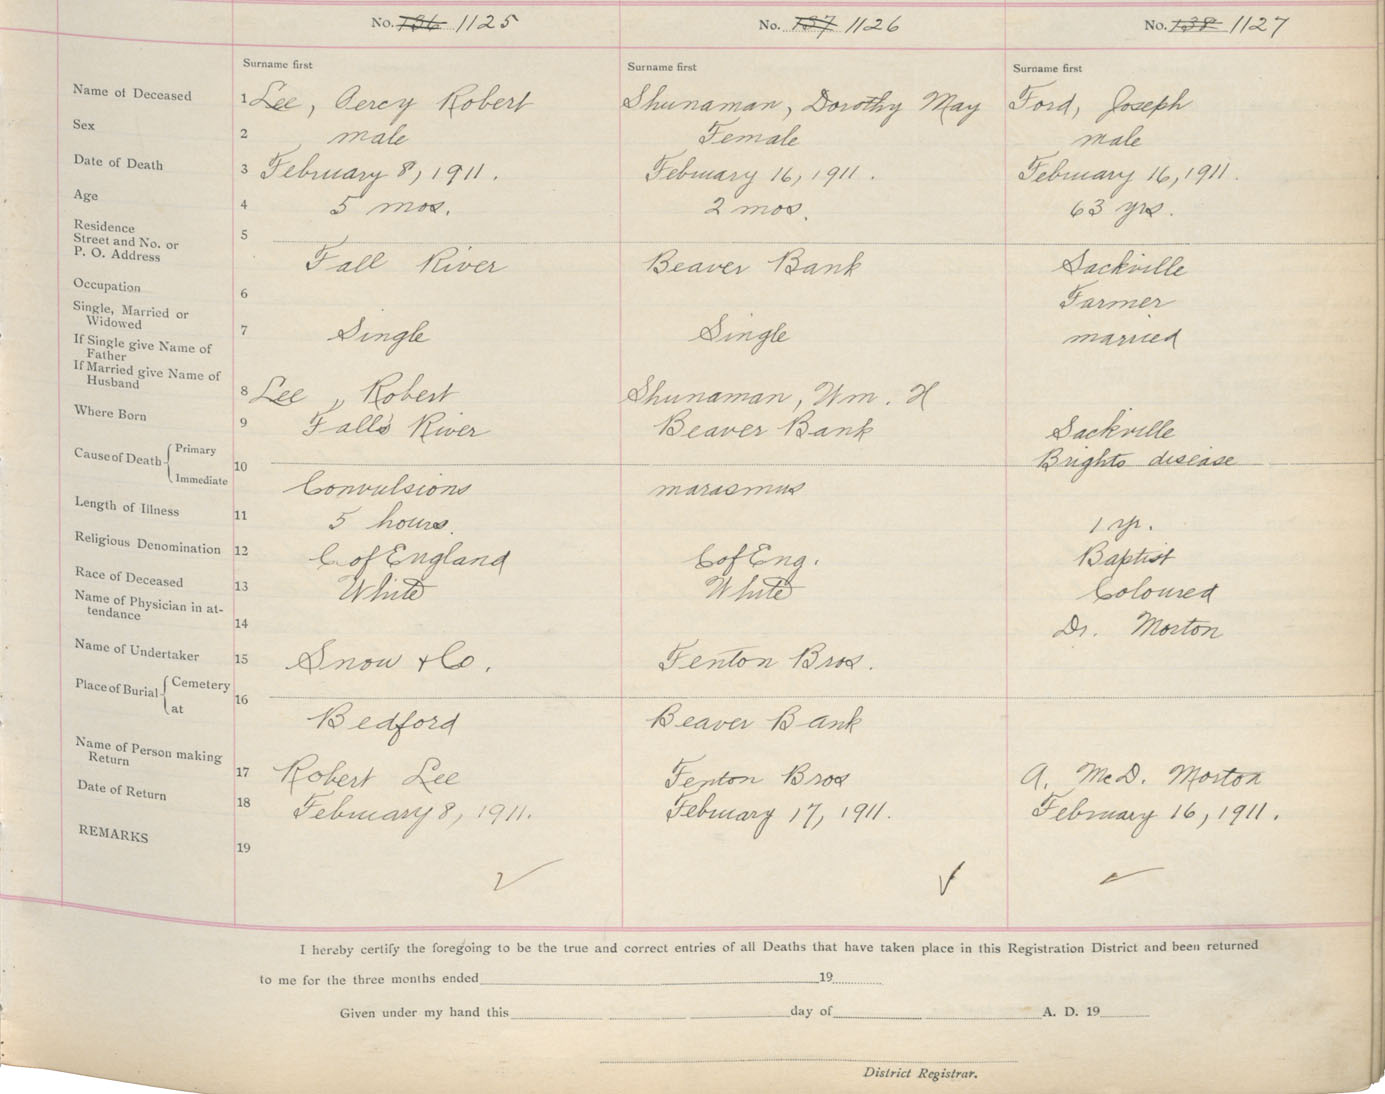 No. 136 1125 No. 137 1126 No. 138 1127
Surname first Surname first Surname first
Name of Deceased 1 Lee, Percy Robert Shunaman, Dorothy May Ford, Joseph
Sex 2 male Female male
Date of Death 3 February 8, 1911. February 16, 1911. February 16, 1911.
Age 4 5 mos. 2 mos. 63 yrs.
Residence
Street and No. or 5
P. O. Address Fall River Beaver Bank Sackville
Occupation 6 Farmer
Single, Married or
Widowed 7 Single Single married
If Single give Name of
Father
If Married give Name of
Husband 8 Lee, Robert Shunaman, Wm. H
Where Born 9 Falls River Beaver Bank Sackville
Cause of Death Primary 10 Brights disease
Immediate Convulsions marasmus
Length of Illness 11 5 hours. 1 yr.
Religious Denomination 12 C of England C of Eng. Baptist
Race of Deceased 13 White White Coloured
Name of Physician in at-
tendance 14 Dr. Morton
Name of Undertaker 15 Snow & Co. Fenton Bros.
Place of Burial Cemetery 16
at Bedford Beaver Bank
Name of Person making
Return 17 Robert Lee Fenton Bros A. McD. Morton
Date of Return 18 February 8, 1911. February 17, 1911. February 16, 1911.
REMARKS 19
I hereby certify the foregoing to be the true and correct entries of all Deaths that have taken place in this Registration District and been returned
to me for the three months ended 19
Given under my hand this day of A. D. 19
District Registrar.